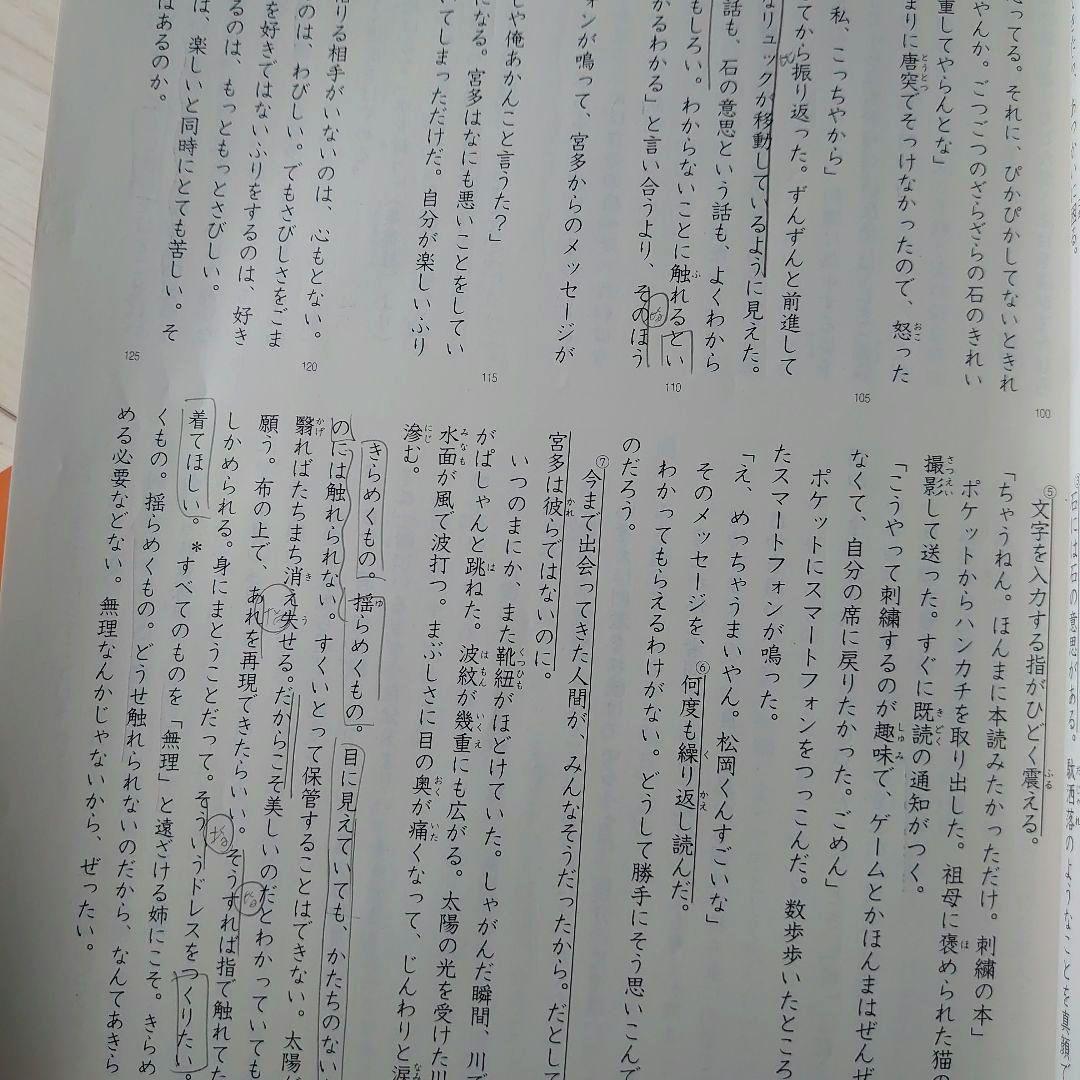 思ってる。それに、ぴかぴかしてないときれ
ちゃんか。ごつごつのざらざらの石のきれい
重してやらんとな」
まりに唐突でそっけなかったので、怒った
私、こっちゃから」
てから振り返った。ずんずんと前進して
なリュックが移動しているように見えた。
話も、石の意思という話も、よくわから
もしろい。わからないことに触れるとい
かるわかる」と言い合うより、そのほう
ォンが鳴って、宮多からのメッセージが
しゃ俺あかんこと言うた?」
になる。宮多はなにも悪いことをしてい
いてしまっただけだ。自分が楽しいふり
りる相手がいないのは、心もとない。
のは、わびしい。でもさびしさをごま
を好きではないふりをするのは、好き
るのは、もっともっとさびしい。
は、楽しいと同時にとても苦しい。そ
はあるのか。
100
105
110
115
120
125
石には石の意思がある。駄洒落のようなことを真顔で
⑤文字を入力する指がひどく震える。
「ちゃうねん。ほんまに本読みたかっただけ。刺繍の本」
ポケットからハンカチを取り出した。祖母に褒められた猫の
撮影して送った。すぐに既読の通知がつく。
「こうやって刺繍するのが趣味で、ゲームとかほんまはぜんぜ
なくて、自分の席に戻りたかった。ごめん」
ポケットにスマートフォンをつっこんだ。数歩歩いたところ
たスマートフォンが鳴った。
「え、めっちゃうまいやん。松岡くんすごいな」
そのメッセージを、⑥何度も繰り返し読んだ。
わかってもらえるわけがない。どうして勝手にそう思いこんで
のだろう。
⑦今まで出会ってきた人間が、みんなそうだったから。だとして
宮多は彼らではないのに。
いつのまにか、また靴紐がほどけていた。しゃがんだ瞬間、川で
がぱしゃんと跳ねた。波紋が幾重にも広がる。太陽の光を受けた川
水面が風で波打つ。まぶしさに目の奥が痛くなって、じんわりと涙
滲む。
きらめくもの。揺らめくもの。目に見えていても、かたちのない
のには触れられない。すくいとって保管することはできない。太陽が
翳ればたちまち消え失せる。だからこそ美しいのだとわかっていても
願う。布の上で、あれを再現できたらいい。そうすれば指で触れてた
しかめられる。身にまとうことだって。そういうドレスをつくりたい。
着てほしい。*すべてのものを「無理」と遠ざける姉にこそ。きらめ
くもの。揺らめくもの。どうせ触れられないのだから、なんてあきら
める必要などない。無理なんかじゃないから、ぜったい。